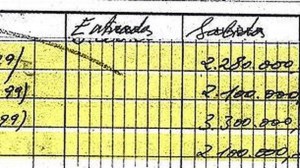 Entrada Salida
29/ 2.280.000,
99) 2.100.000,
99) 3.300.000,
2.100.000,